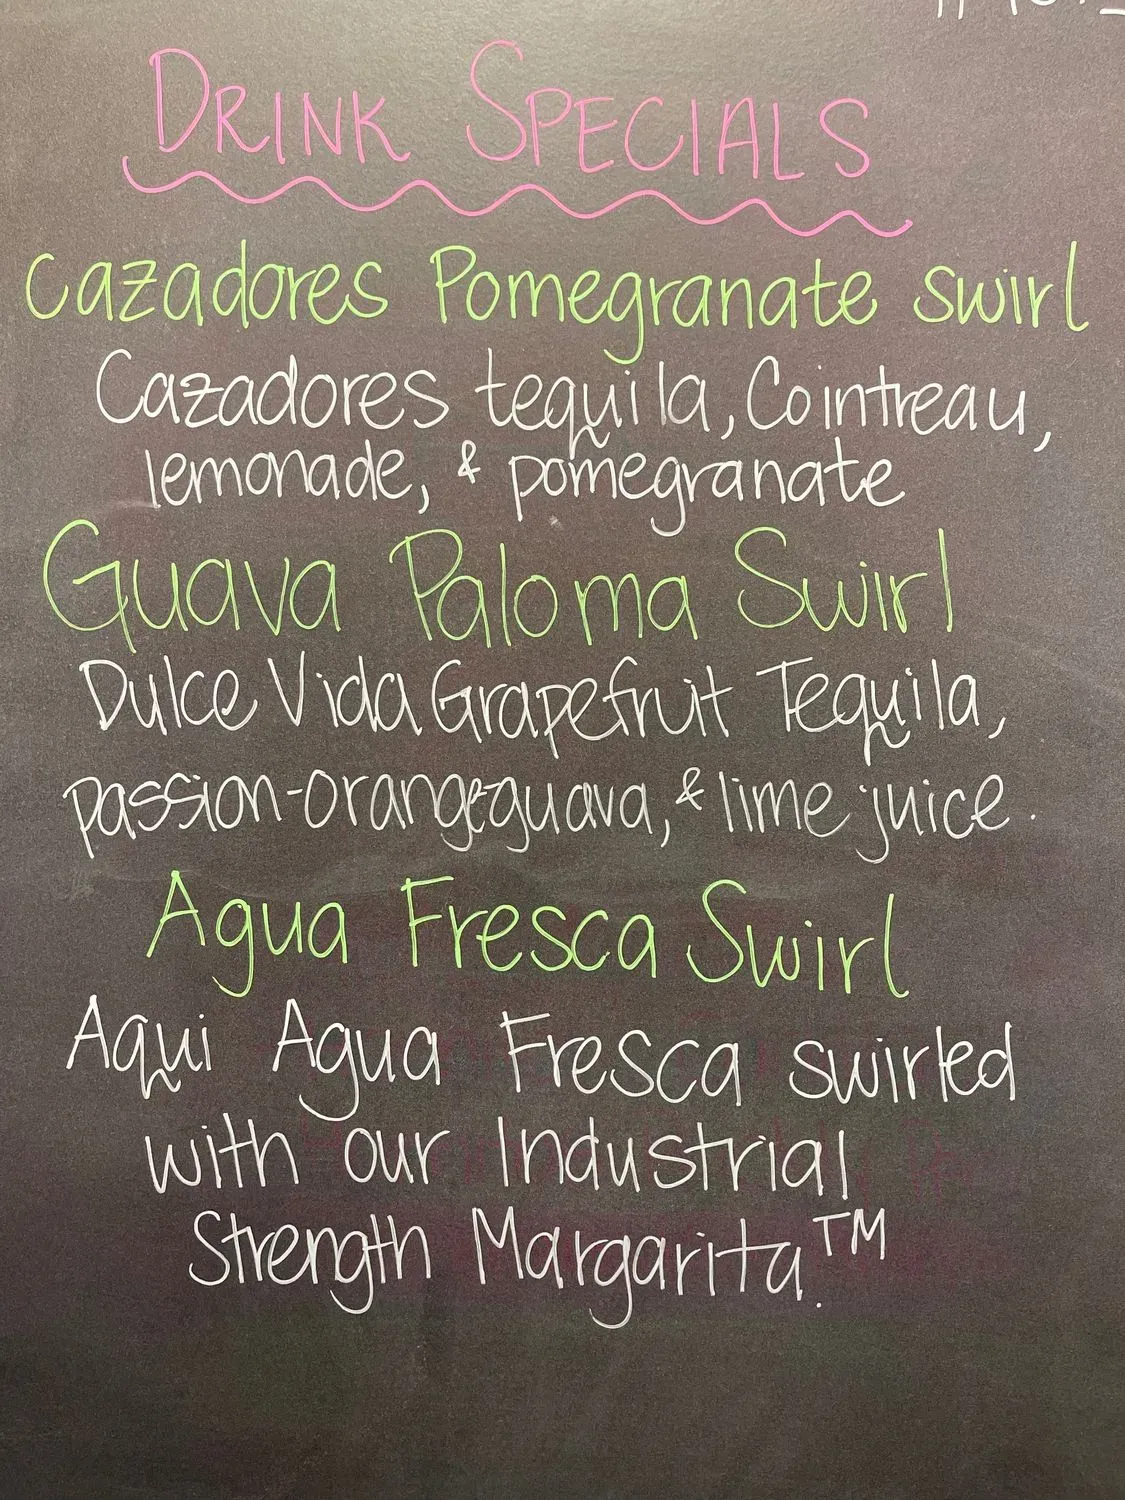 DRINK SPECIALS
Cazadores Pomegranate swirl
Cazadores tequila, Cointreau,
lemonade, & pomegranate
Guava Paloma Swirl
Dulce Vida Grapefruit Tequila,
passion-orange-guava, & lime juice.
Agua Fresca Swirl
Aqui Agua Fresca swirled
with our Industrial
Strength Margarita.™